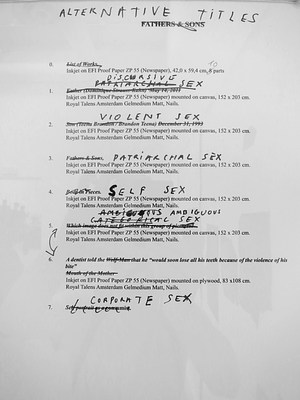 ALTERNATIVE TITLES
FATHERS & SONS
0. List of Works, TO
Inkjet on EFI Proof Paper ZP 55 (Newspaper), 42,0 x 59,4 cm, 6 parts
DISCURSIVE
PATRIARCHAL SEX
1. Father (Dominique Strauss-Kahn) May 16, 2011
Inkjet on EFI Proof Paper ZP 55 (Newspaper) mounted on canvas, 152 x 203 cm.
Royal Talens Amsterdam Gelmedium Matt, Nails.
VIOLENT SEX
2. Son (Teena Brandon / Brandon Teena) December 31, 1993
Inkjet on EFI Proof Paper ZP 55 (Newspaper) mounted on canvas, 152 x 203 cm.
Royal Talens Amsterdam Gelmedium Matt, Nails.
3. Fathers & Sons, PATRIARCHAL SEX
Inkjet on EFI Proof Paper ZP 55 (Newspaper) mounted on canvas, 152 x 203 cm.
Royal Talens Amsterdam Gelmedium Matt, Nails.
4. Pieces. SELF SEX
Inkjet on EFI Proof Paper ZP 55 (Newspaper) mounted on canvas, 152 x 203 cm.
Royal Talens Amsterdam Gelmedium Matt, Nails.
AMBIGUOUS AMBIGUOUS
CATEGORICAL SEX
5. Which image does not fit within this group of pictures
Inkjet on EFI Proof Paper ZP 55 (Newspaper) mounted on canvas, 152 x 203 cm.
Royal Talens Amsterdam Gelmedium Matt, Nails.
6. A dentist told the Wolf Man that he "would soon lose all his teeth because of the violence of his
bite"
Mouth of the Mother
Inkjet on EFI Proof Paper ZP 55 (Newspaper) mounted on plywood, 83 x108 cm.
Royal Talens Amsterdam Gelmedium Matt, Nails.
CORPORATE SEX
7. Self portrait